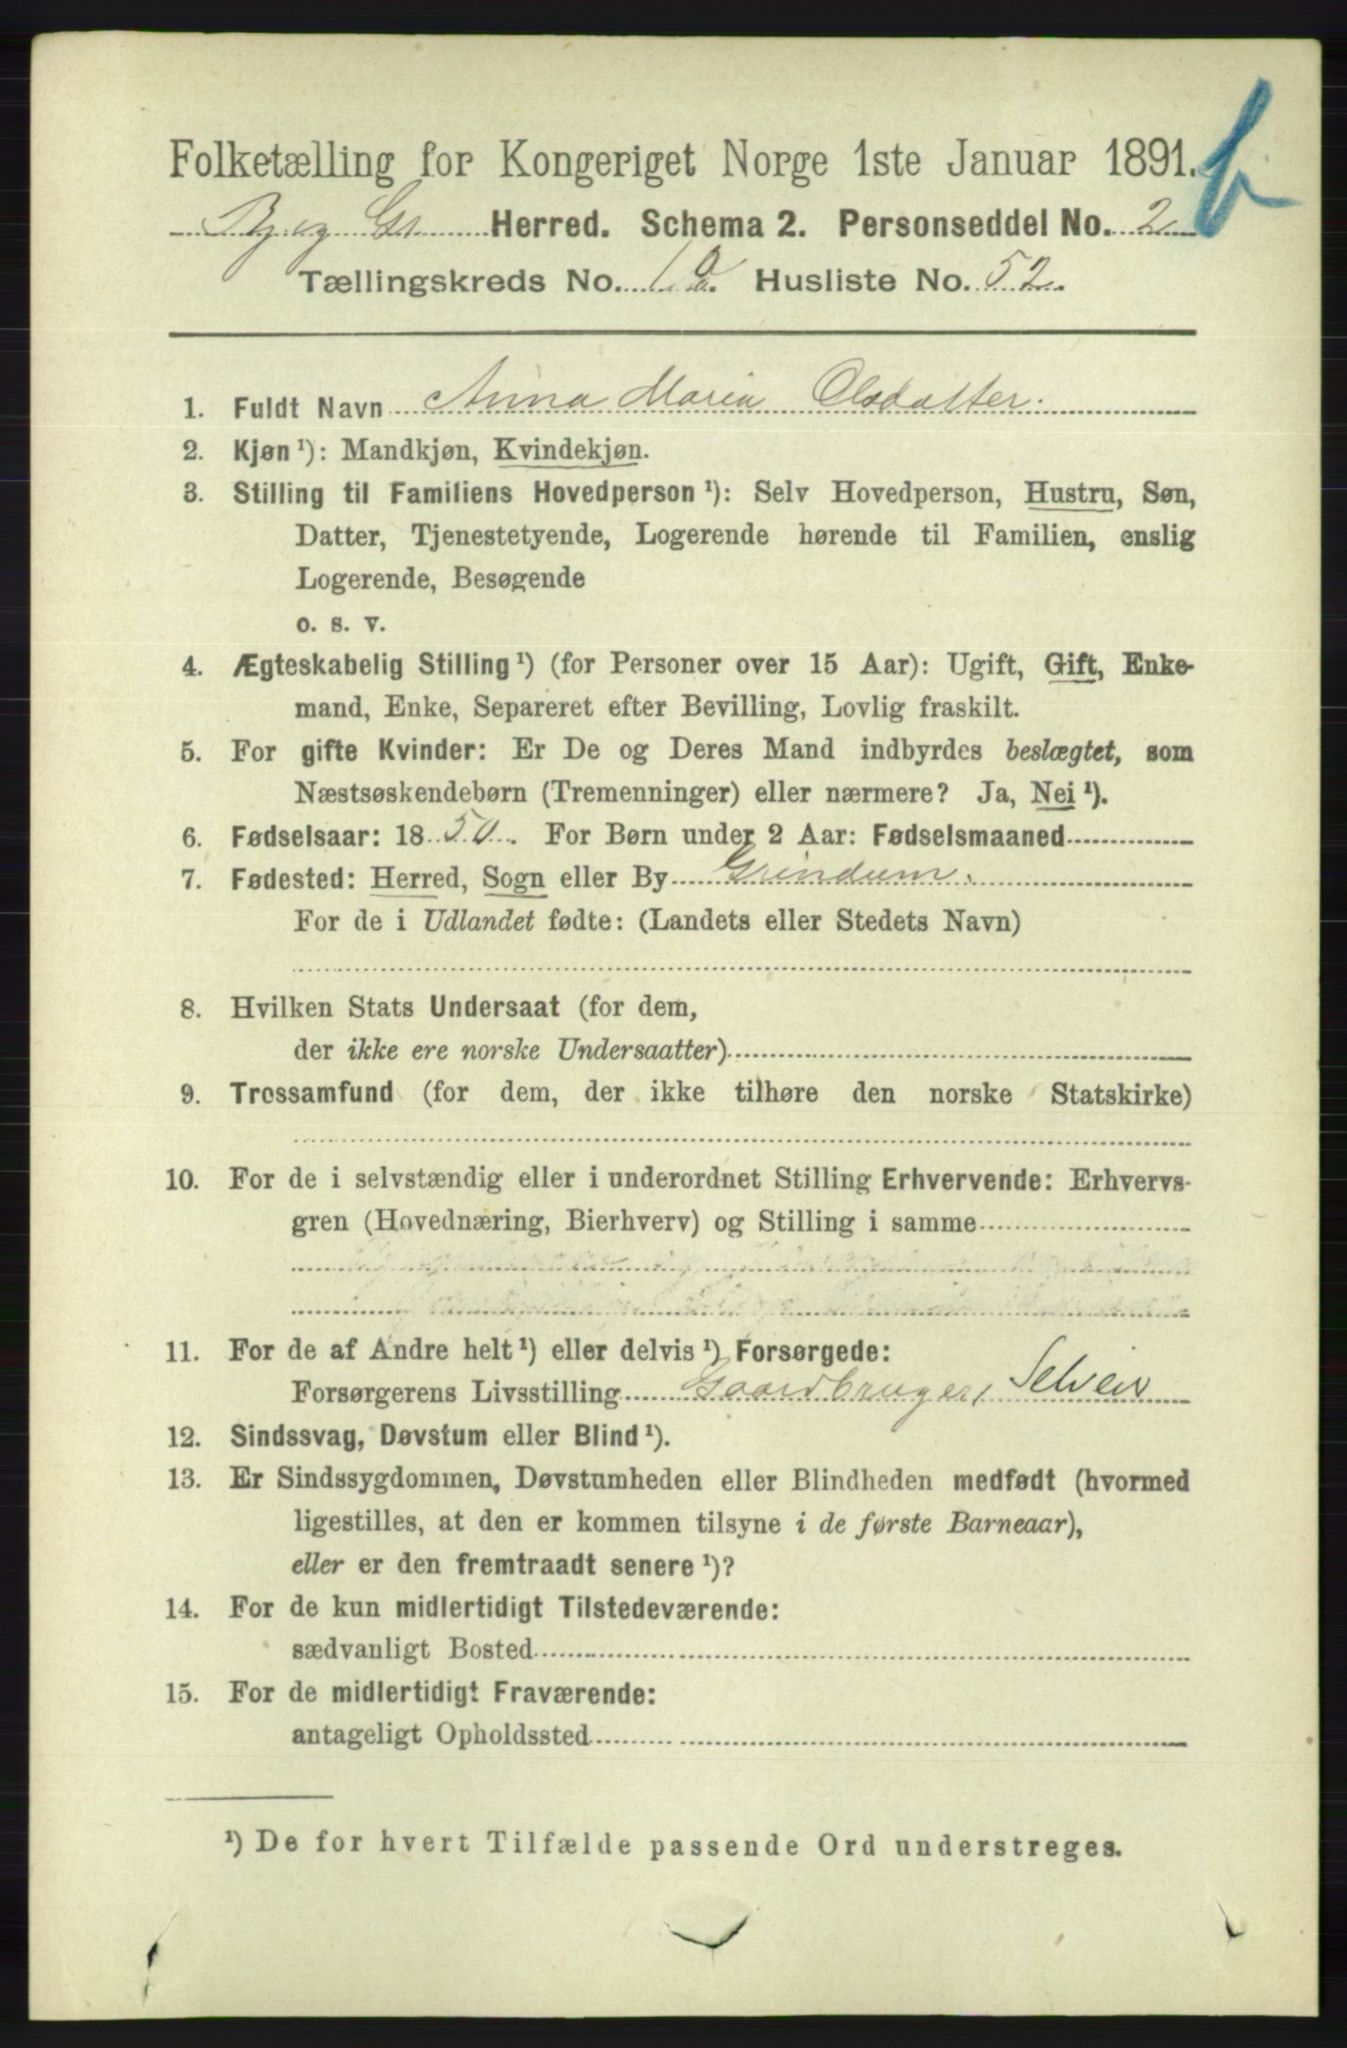 Folketælling for Kongeriget Norge 1ste Januar 1891.
b
Bj. og Gr. Herred. Schema 2. Personseddel No. 2
Tællingskreds No. 10. Husliste No. 52.
1. Fuldt Navn Anna Maria Olsdatter.
2. Kjøn ¹): Mandkjøn, Kvindekjøn.
3. Stilling til Familiens Hovedperson ¹): Selv Hovedperson, Hustru, Søn,
Datter, Tjenestetyende, Logerende hørende til Familien, enslig
Logerende, Besøgende
o. s. v.
4. Ægteskabelig Stilling ¹) (for Personer over 15 Aar): Ugift, Gift, Enke-
mand, Enke, Separeret efter Bevilling, Lovlig fraskilt.
5. For gifte Kvinder: Er De og Deres Mand indbyrdes beslægtet, som
Næstsøskendebørn (Tremenninger) eller nærmere? Ja, Nei ¹).
6. Fødselsaar: 1850. For Børn under 2 Aar: Fødselsmaaned
7. Fødested: Herred, Sogn eller By Grindum.
For de i Udlandet fødte: (Landets eller Stedets Navn)
8. Hvilken Stats Undersaat (for dem,
der ikke ere norske Undersaatter)
9. Trossamfund (for dem, der ikke tilhøre den norske Statskirke)
10. For de i selvstændig eller i underordnet Stilling Erhvervende: Erhvervs-
gren (Hovednæring, Bierhverv) og Stilling i samme
11. For de af Andre helt ¹) eller delvis ¹) Forsørgede:
Forsørgerens Livsstilling Gaardbruger, Selveier
12. Sindssvag, Døvstum eller Blind ¹).
13. Er Sindssygdommen, Døvstumheden eller Blindheden medfødt (hvormed
ligestilles, at den er kommen tilsyne i de første Barneaar),
eller er den fremtraadt senere ¹)?
14. For de kun midlertidigt Tilstedeværende:
sædvanligt Bosted
15. For de midlertidigt Fraværende:
antageligt Opholdssted
¹) De for hvert Tilfælde passende Ord understreges.